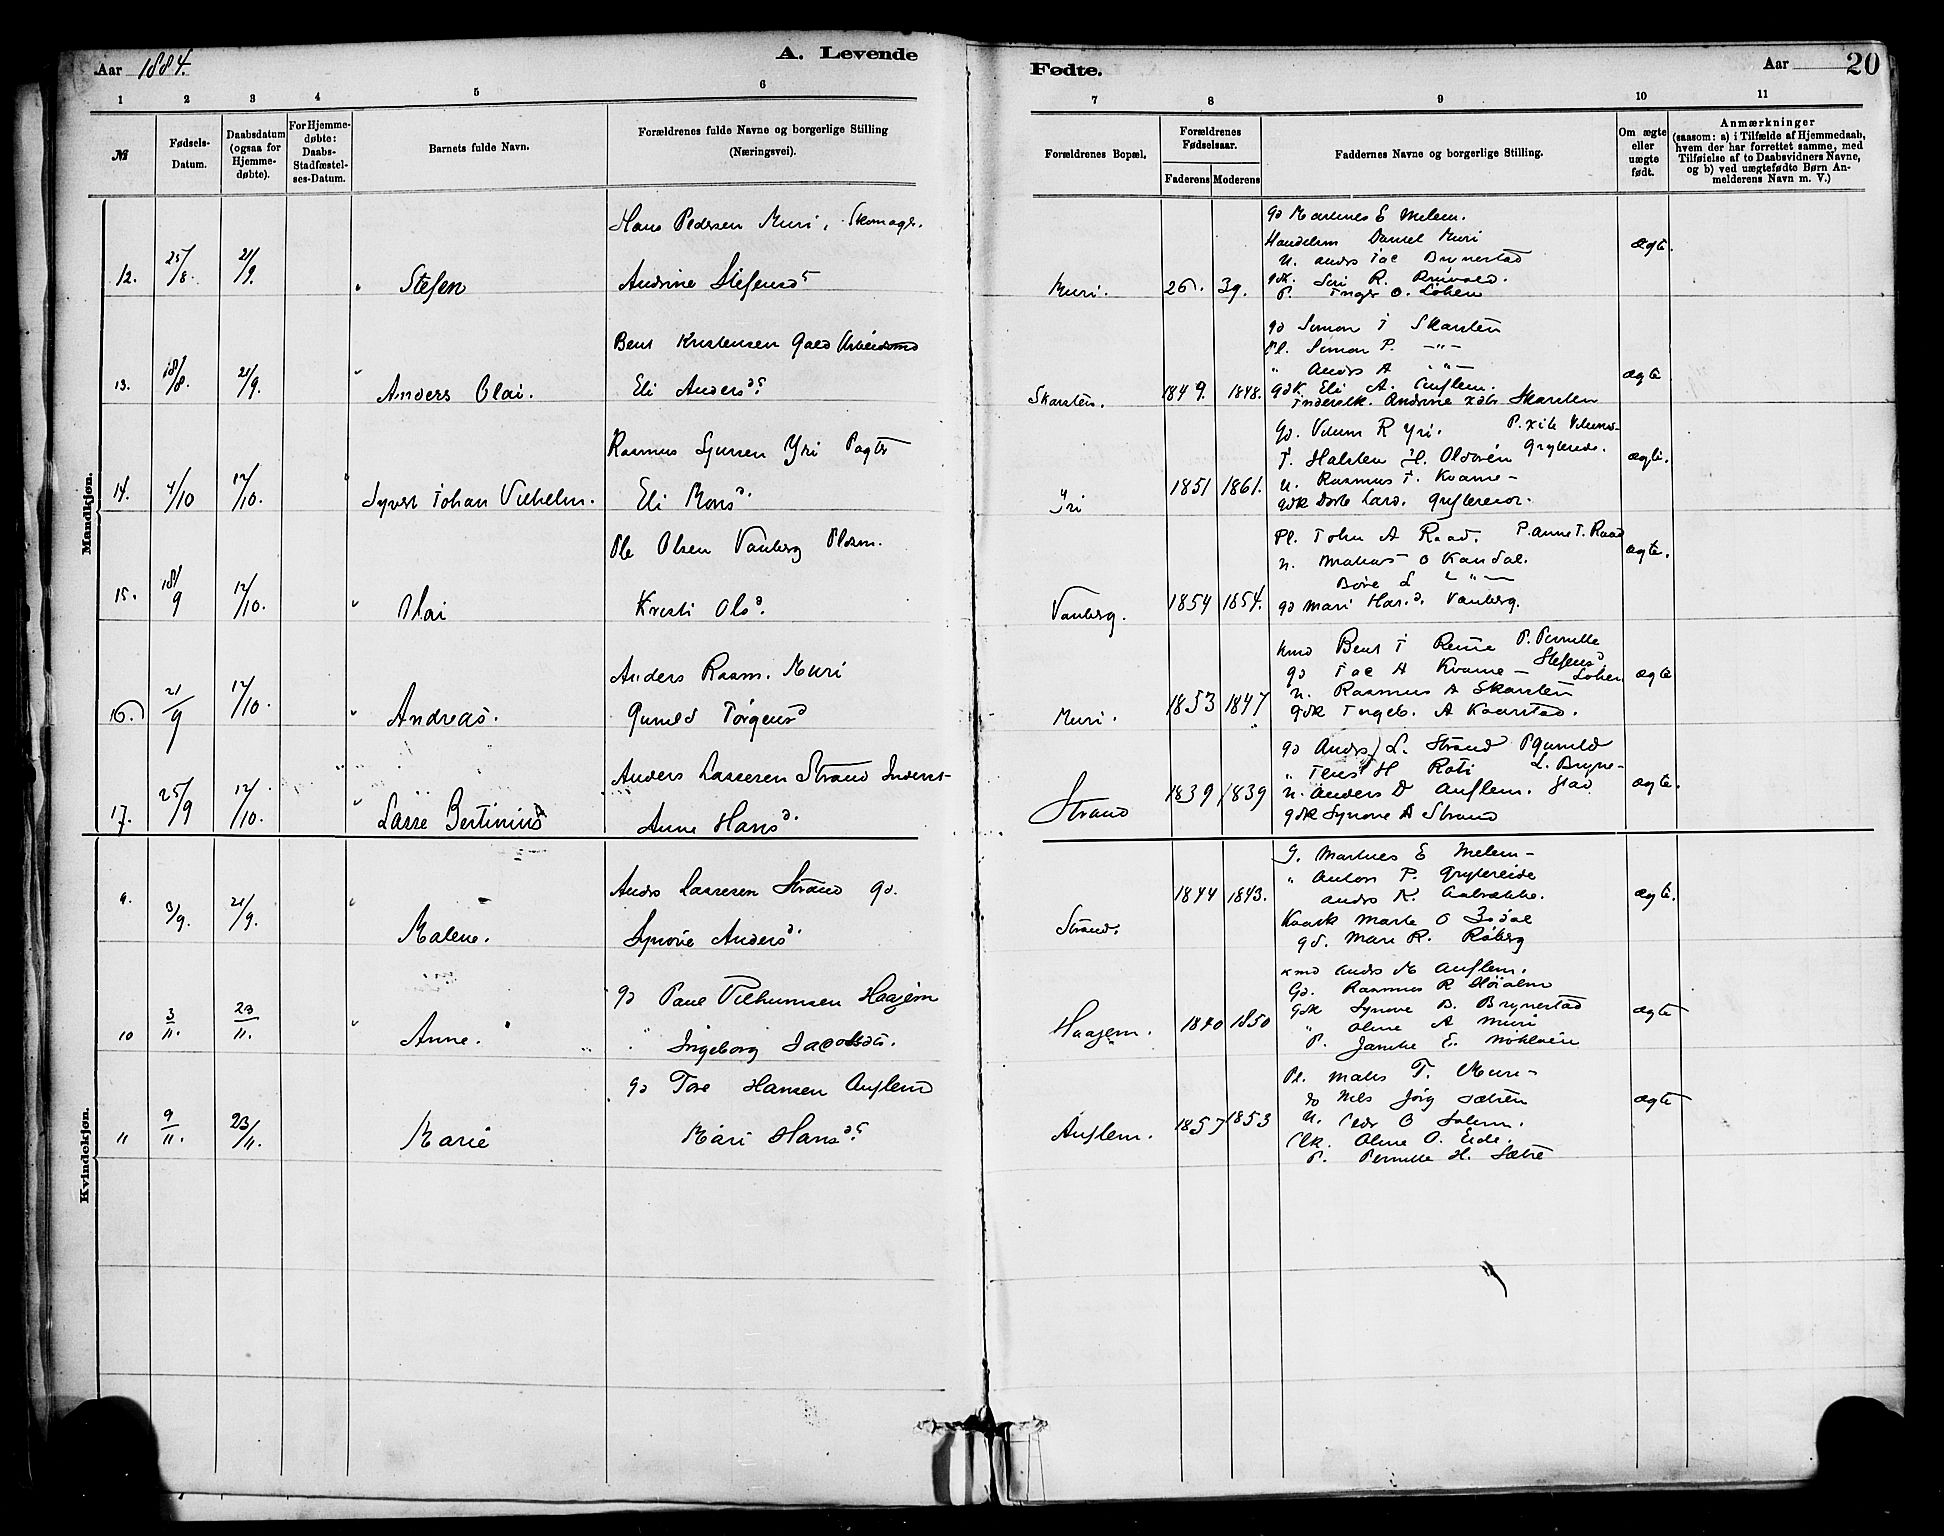 Aar 1884.
A. Levende
Fødte.
Aar
20
1 2 3 4 5 6 7 8 9 10 11
№
Fødsels-Datum.
Daabsdatum (ogsaa for Hjemme-døbte).
For Hjemme-døbte: Daabs-Stadfæstel-ses-Datum.
Barnets fulde Navn.
Forældrenes fulde Navne og borgerlige Stilling (Næringsvei).
Forældrenes Bopæl.
Forældrenes Fødselsaar.
Faderens Moderens
Faddernes Navne og borgerlige Stilling.
Om ægte eller uægte født.
Anmærkninger
(saasom: a) i Tilfælde af Hjemmedaab,
hvem der har forrettet samme, med
Tilføielse af to Daabsvidners Navne,
og b) ved uægtefødte Børn An-
melderens Navn m. V.)
Mandkjøn.
12. 25/8. 21/9. Stefen
Hans Pedersen Muri, Skomagr.
Andrine Stefensd
Muri. 26. 39.
Gd Martines E Melem.
Handelsm Daniel Muri
U. Andrs Brynestad
gdk. Siri R.
P. Inger O. Løken
ægte.
13. 18/8. 21/9. Anders Olai.
Bent Kristensen Gald Arbeidsmd
Eli Andersd
Skarsten. 1849. 1848.
gd Simon T Skarsten
Pl. Simon P. -"-
" Andrs A -"-
gdk Eli A. Auflem.
Inderstk. Andrine Skarsten
ægte
14. 4/10 12/10. Syvert Johan Vilhelm.
Rasmus Sjursen Yri Pagtr
Eli Monsd.
Yri 1851 1861.
gd. Vilum R Yri.
T. Halsten H. Oldøren
U. Rasmus T. Kvame
gdk Dorte Larsd. Grytereior.
ægte.
15. 18/9 12/10. Olai
Ole Olsen Vanberg Pldsm.
Kristi Olsd.
Vanberg. 1854 1854.
Pl. John A Raad. P. Anne T. Raad
U. Mathias O Kandal.
Børe L -"-
gd Mari Har.d. Vanberg.
ægte.
16. 21/9 12/10. Andreas.
Anders Rasm. Muri
Gunild Jørgensd
Muri. 1853 1847
kmd Bent T P. Pernille
Stefensd
gd A Kvame Løken
U. Rasmus A Skarsten
gdk Ingeb. A Kaarstad.
ægte
17. 25/9 12/10. Lasse Bertinius
Anders Lassesen Strand Inderst
Anne Hansd.
Strand 1839 1839
gd Andrs L. Strand P Gunild
" Jens H L. Bryne-
U. Anders D Auflem. stad
gdk Synøve A Strand
ægte.
Kvindekjøn.
9. 3/9. 21/9. Malene.
Andrs Lassesen Strand gd.
Synøve Andersd.
Strand. 1844 1843.
G. Martines E Melem
" Anton P. Grytereide
Andrs K. Aabrække.
Kaark Marte O
gd. Mari R. Røberg
ægte.
10 3/11. 23/11. Anne.
gd Paul Vilhumsen Haagem
Ingeborg Jacobsdt.
Haagem. 1840 1850
kmd Andrs M Auflem.
Gd. Rasmus R
gdk Synøve B. Brynestad
" Oline A Muri
P. E.
ægte
11 9/11. 23/11. Marie
gd Tore Hansen Auflem
Mari Hansd.
Auflem. 1857 1853
Pl. Mats T. Muri
do Nils Jørg Sætren
U. Pedr O
Plk. Oline O. Eide.
P. Pernille H. Sætre
ægte